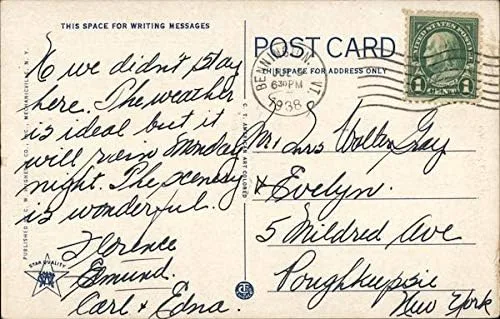 THIS SPACE FOR WRITING MESSAGES
POST CARD
THIS SPACE FOR ADDRESS ONLY
UNITED STATES POSTAGE
1 CENT 1
BENNINGTON, VT.
630 PM
1938
No we didn't stay
here. The weather
is ideal but it
will rain Monday
night. The scenery
is wonderful.
Florence
Edmund.
Carl & Edna.
Mr & Mrs Walter Gay
& Evelyn.
5 Mildred Ave
Poughkeepsie
New York
STAR QUALITY
C. T. AMERICAN ART COLORED
PUBLISHED BY C. W. HUGHES & CO., INC., MECHANICVILLE, N. Y.